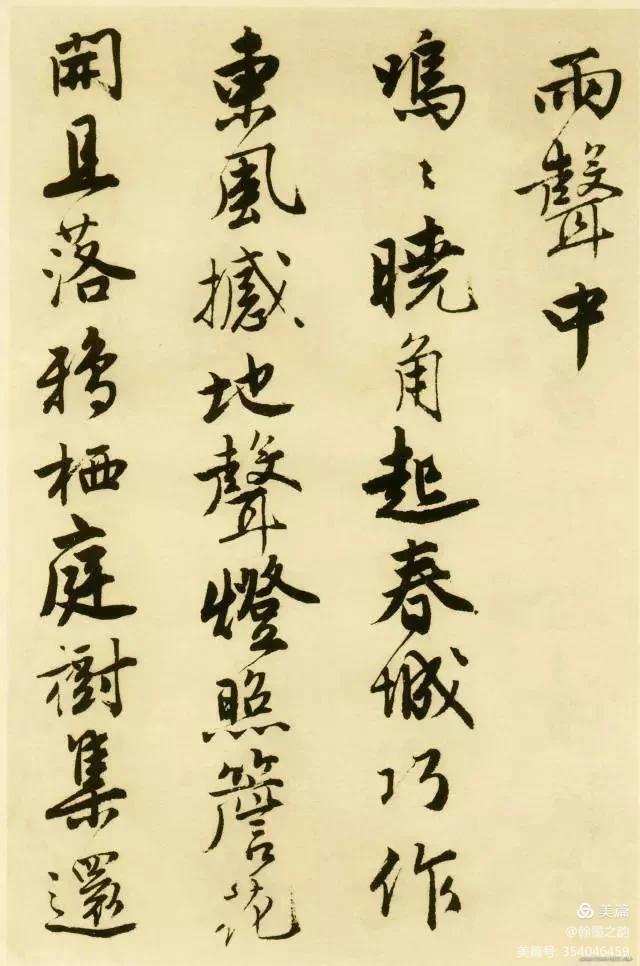 雨聲中
嗚〻曉角起春城巧作
東風撼地聲燈照簷花
開且落鴉栖庭樹集還
美篇
@翰墨之韵
美篇号: 354046459